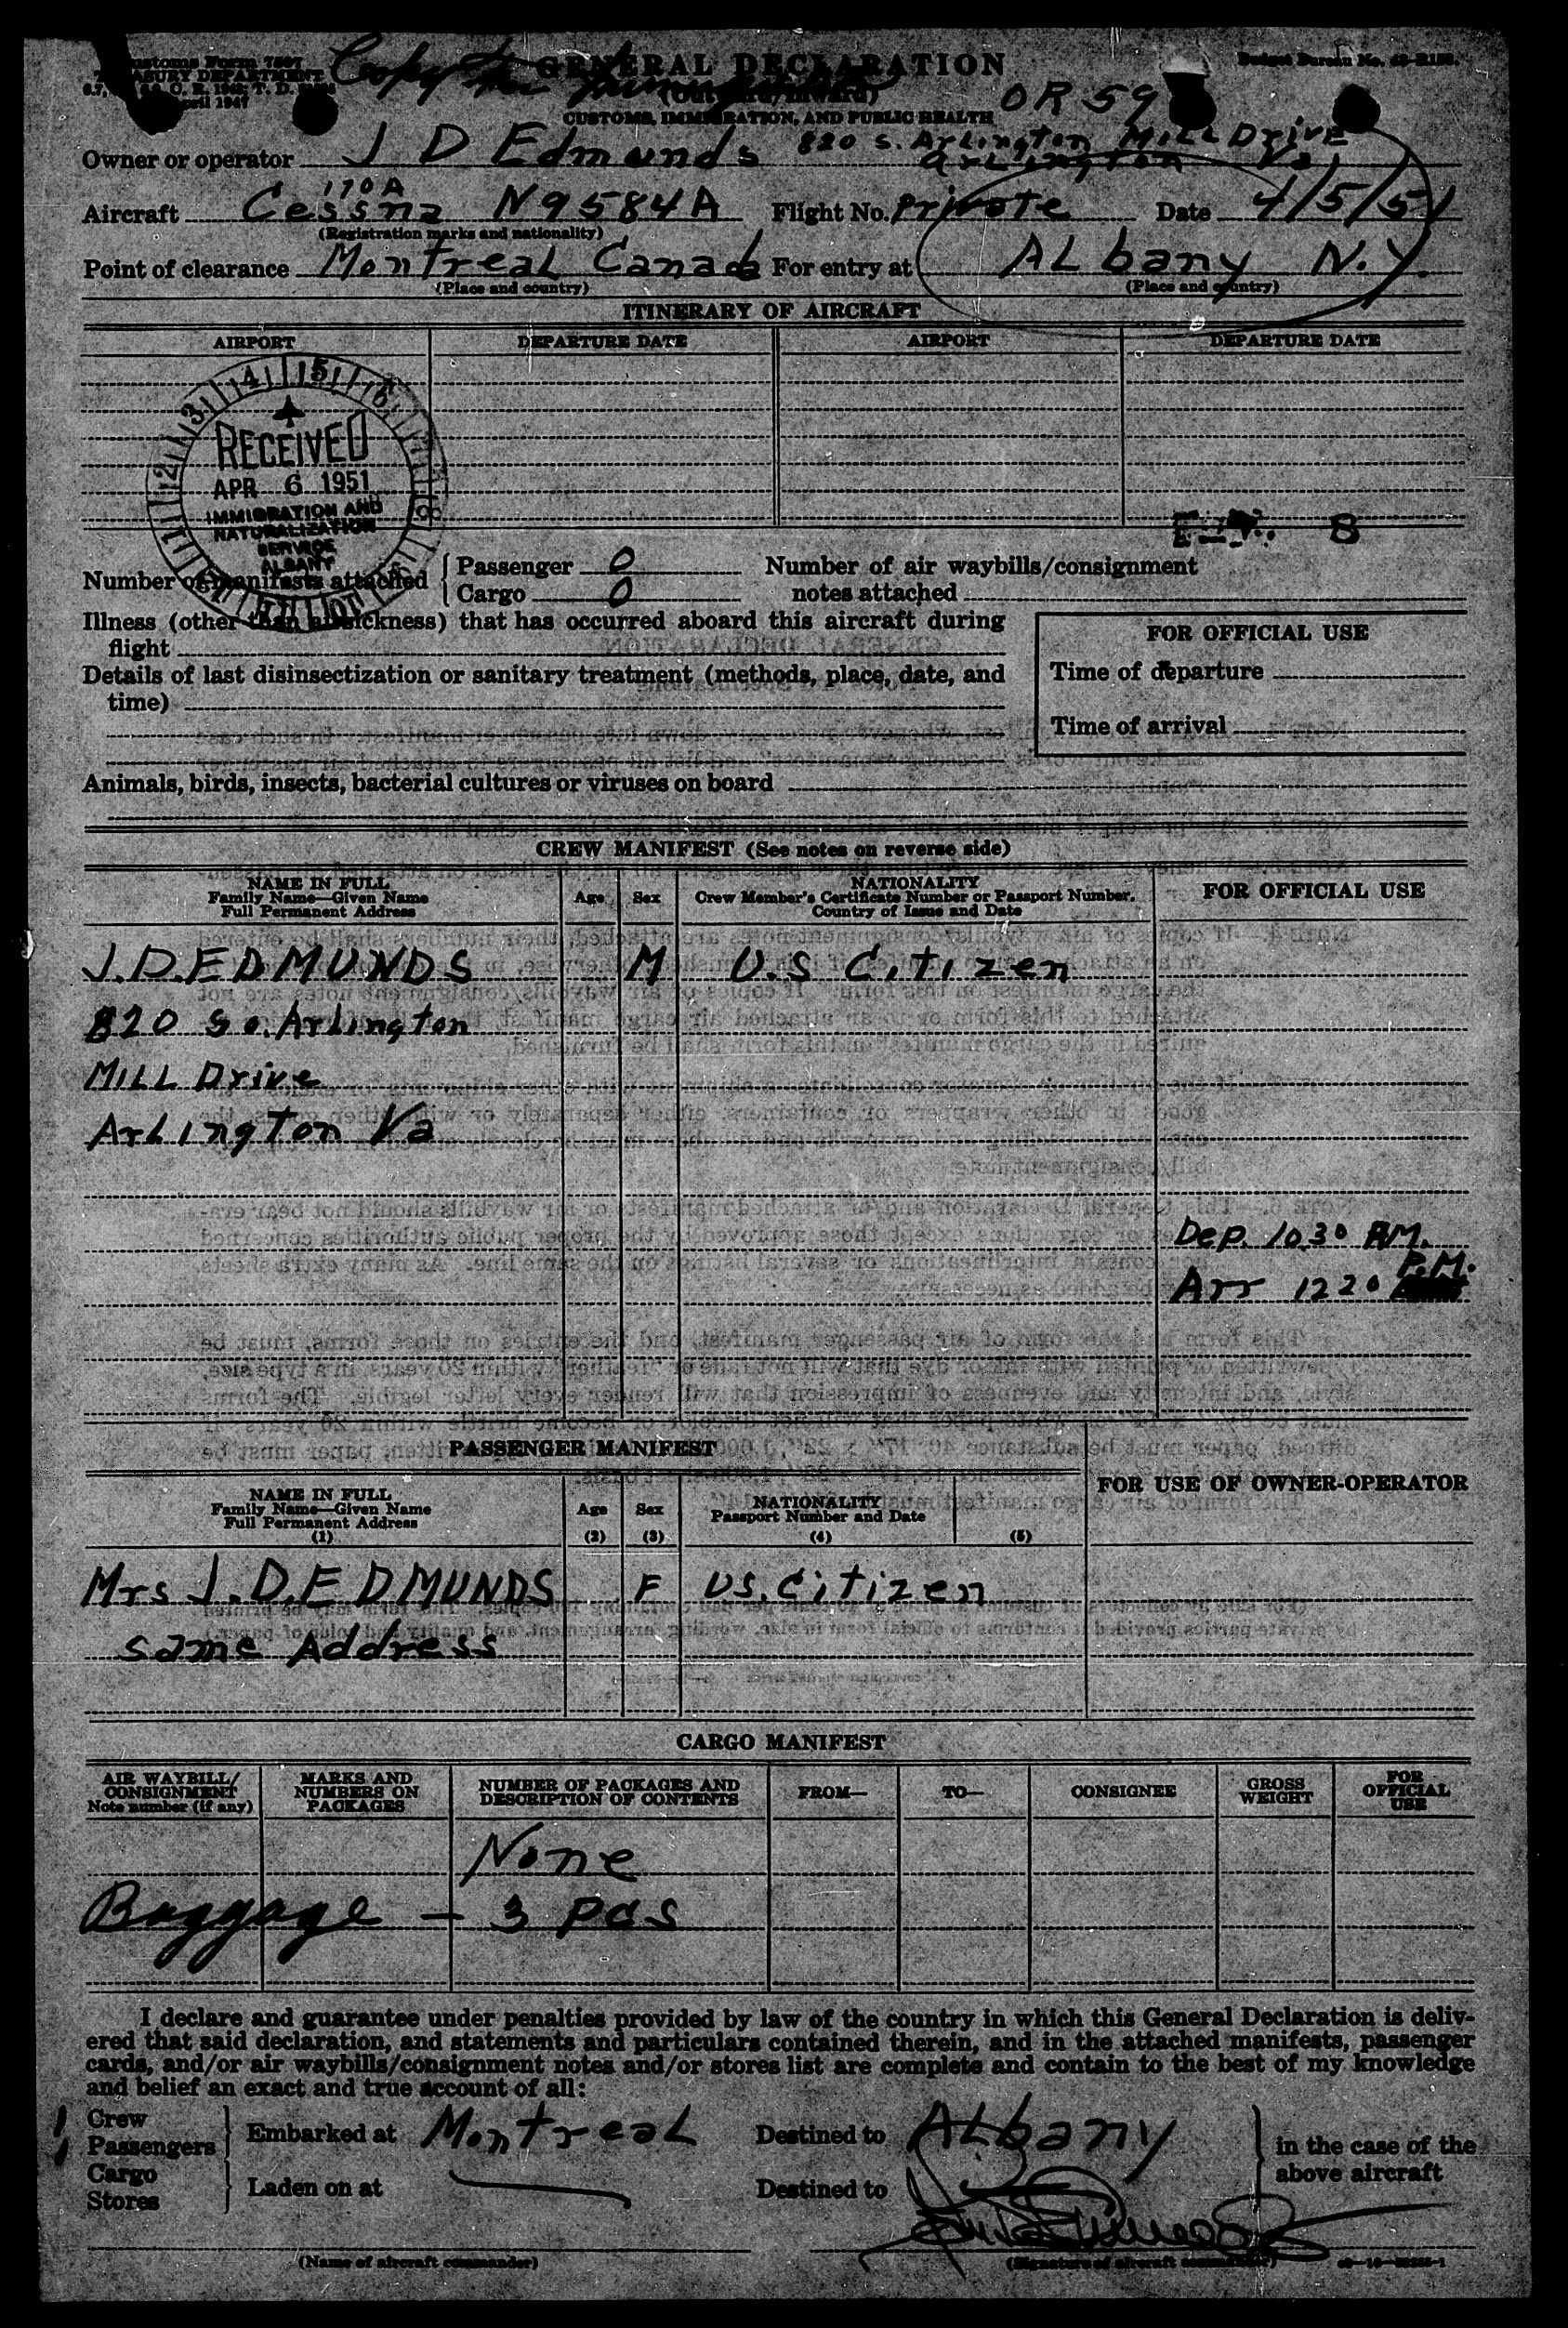 Customs Form 7507
TREASURY DEPARTMENT
April 1947
Budget Bureau No.
Copy for Immigration
GENERAL DECLARATION
(Outward/Inward)
CUSTOMS, IMMIGRATION, AND PUBLIC HEALTH
OR 59
Owner or operator J D Edmunds 820 S. Arlington Mill Drive
Arlington Va
170A
Aircraft Cessna N9584A Flight No. Private Date 4/5/51
(Registration marks and nationality)
Point of clearance Montreal Canada For entry at Albany N.Y.
(Place and country) (Place and country)
ITINERARY OF AIRCRAFT
AIRPORT DEPARTURE DATE AIRPORT DEPARTURE DATE
RECEIVED
APR 6 1951
IMMIGRATION AND
NATURALIZATION
SERVICE
ALBANY
8
Number of manifests attached { Passenger 0 Number of air waybills/consignment
Cargo 0 notes attached
Illness (other than airsickness) that has occurred aboard this aircraft during
flight
Details of last disinsectization or sanitary treatment (methods, place, date, and
time)
FOR OFFICIAL USE
Time of departure
Time of arrival
Animals, birds, insects, bacterial cultures or viruses on board
CREW MANIFEST (See notes on reverse side)
NAME IN FULL
Family Name—Given Name
Full Permanent Address
Age Sex
NATIONALITY
Crew Member's Certificate Number or Passport Number,
Country of Issue and Date
FOR OFFICIAL USE
J.D. EDMUNDS M U.S Citizen
820 So. Arlington
Mill Drive
Arlington Va
Dep. 10 30 AM.
P.M.
Arr 12 20
PASSENGER MANIFEST
FOR USE OF OWNER-OPERATOR
NAME IN FULL
Family Name—Given Name
Full Permanent Address
(1)
Age
(2)
Sex
(3)
NATIONALITY
Passport Number and Date
(4) (5)
Mrs J.D. EDMUNDS F US. Citizen
same Address
CARGO MANIFEST
AIR WAYBILL/
CONSIGNMENT
Note number (if any)
MARKS AND
NUMBERS ON
PACKAGES
NUMBER OF PACKAGES AND
DESCRIPTION OF CONTENTS
FROM— TO— CONSIGNEE
GROSS
WEIGHT
FOR
OFFICIAL
USE
None
Baggage - 3 pcs
I declare and guarantee under penalties provided by law of the country in which this General Declaration is deliv-
ered that said declaration, and statements and particulars contained therein, and in the attached manifests, passenger
cards, and/or air waybills/consignment notes and/or stores list are complete and contain to the best of my knowledge
and belief an exact and true account of all:
1 Crew
1 Passengers } Embarked at Montreal Destined to Albany } in the case of the
above aircraft
Cargo
Stores } Laden on at Destined to
(Name of aircraft commander) (Signature of aircraft commander)